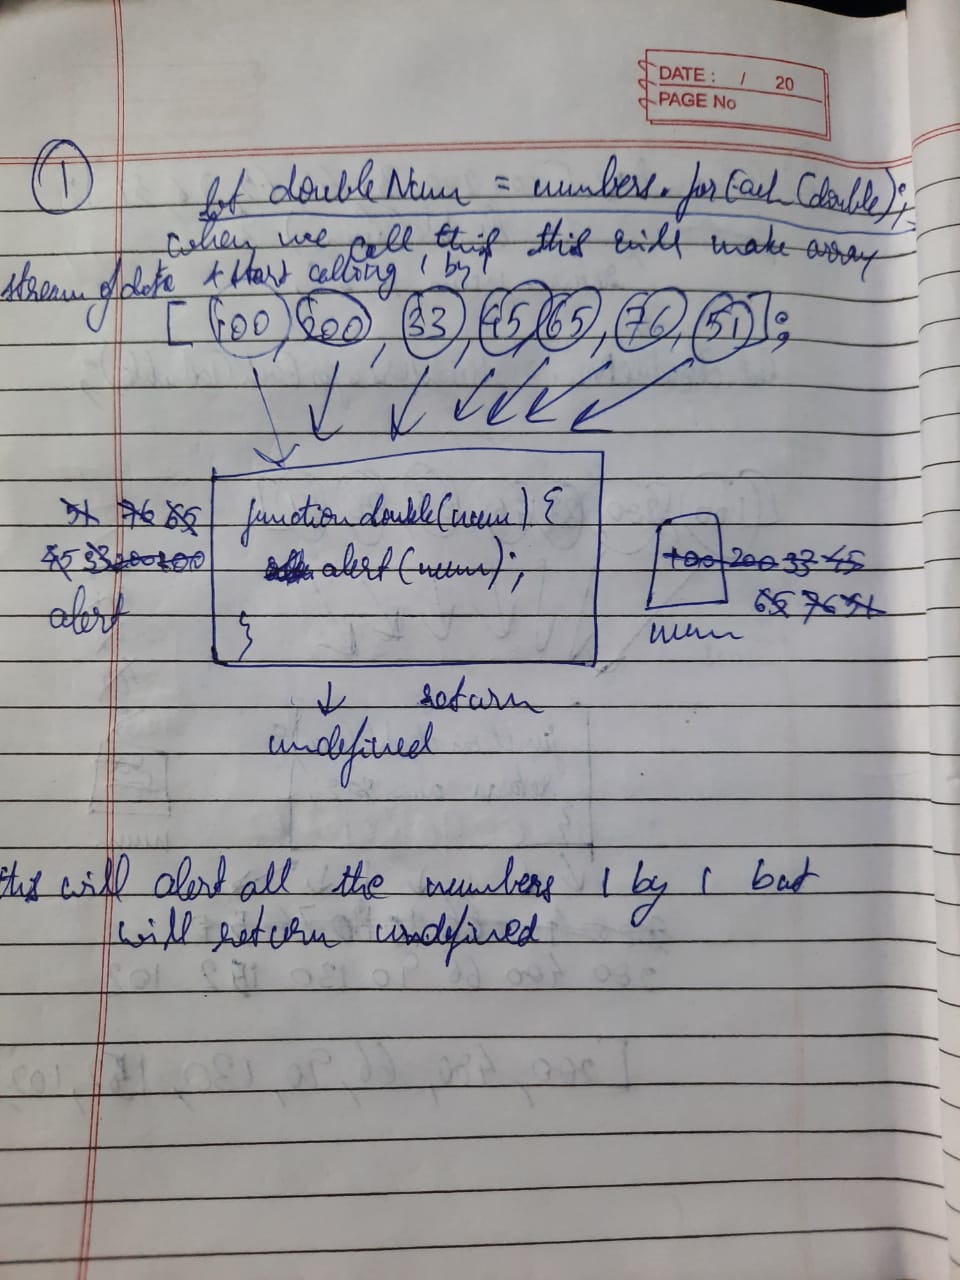 DATE : / 20
PAGE No
1
let doubleNum = numbers.forEach(double);
when we call this this will make array
stream of data & start calling 1 by 1
[ 100, 200, 33, 45, 65, 76, 51 ];
51 76 65
45 33 200 100
alert
function double(num) {
alert(num);
}
100 200 33 45
65 76 51
num
↓ return
undefined
this will alert all the numbers 1 by 1 but
will return undefined